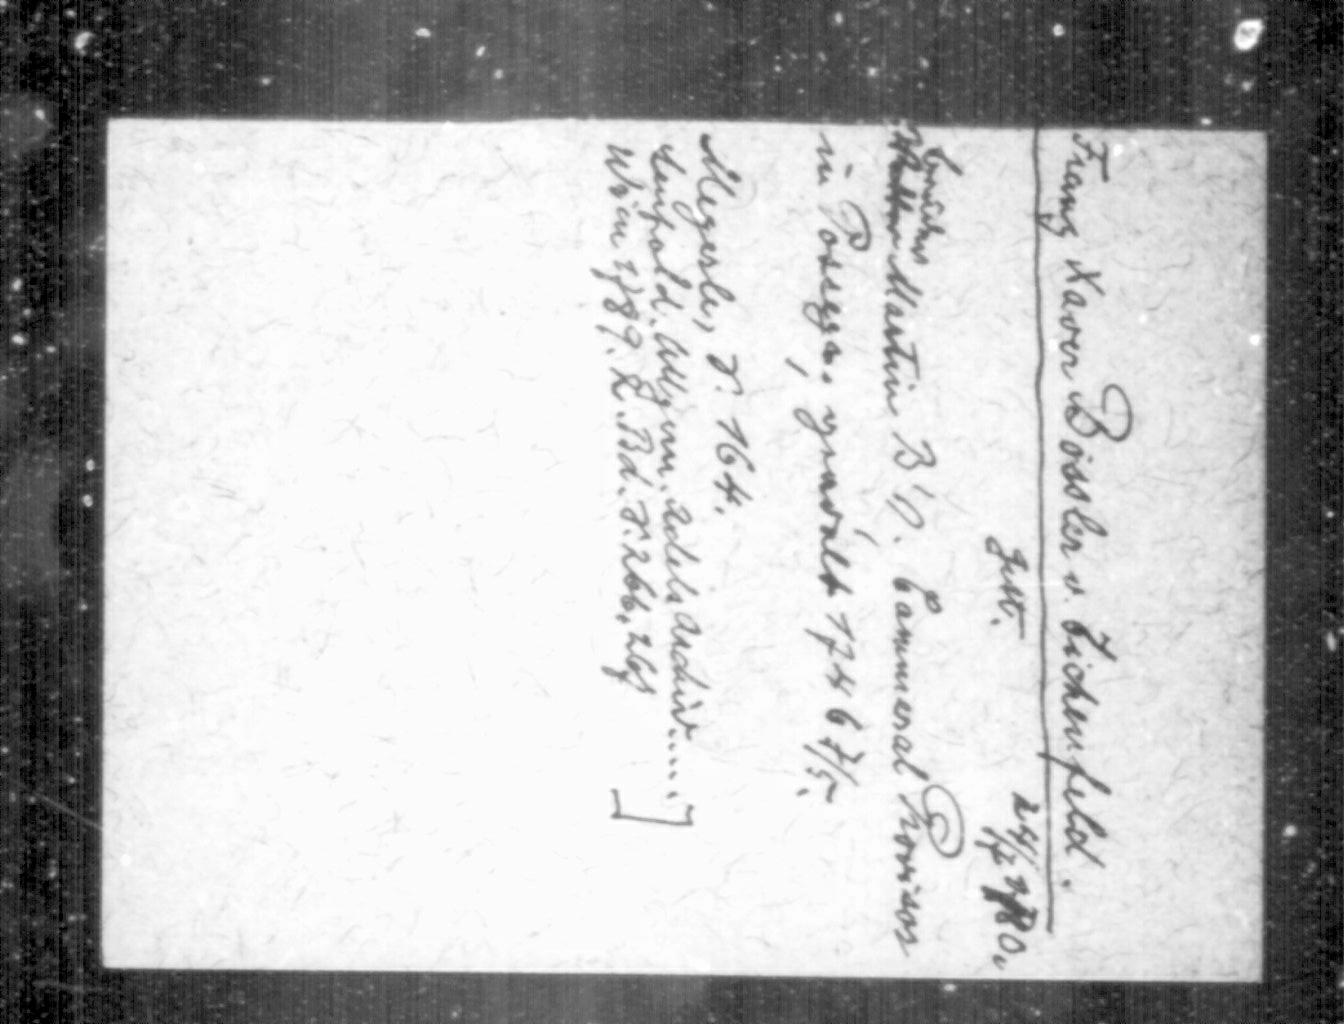 Franz Xaver Bössler v. Eichenfeld.
24/7 1780.
Mart.
Martin B's. Cameral Provisor
in Possega, gewählt 1746 7/5.
Megerle, S. 164.
Leupold. Allgem. Adels Archiv.....
Wien 1789. I. Bd. S. 266, 267 ]